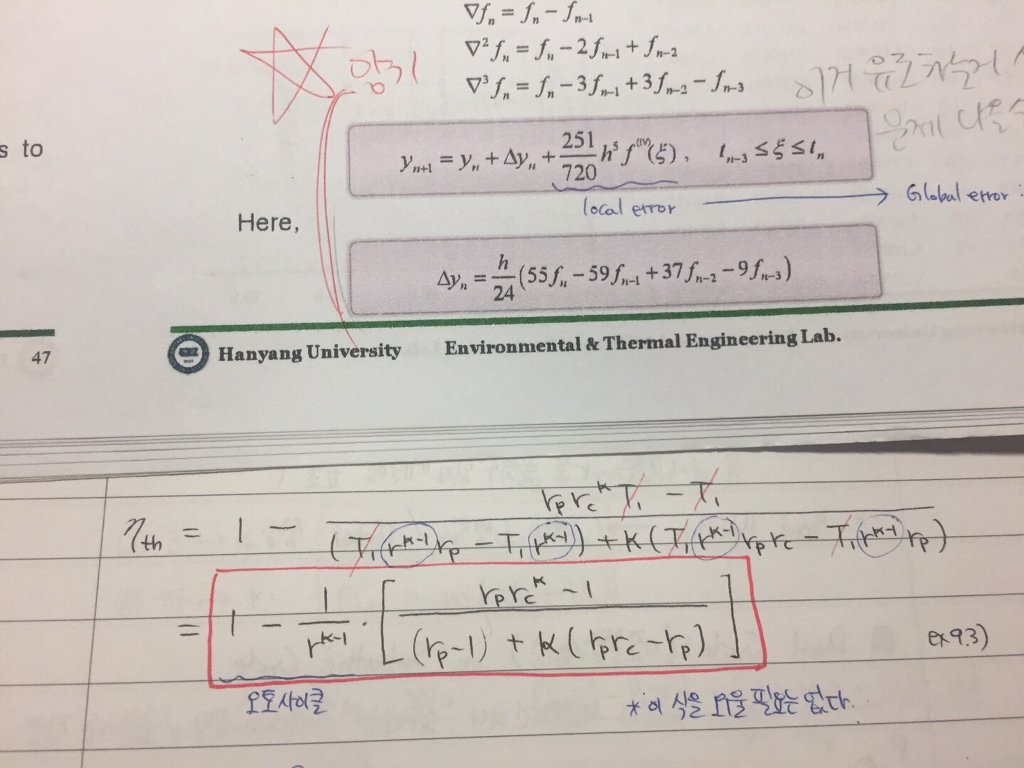 ∇fₙ = fₙ − fₙ₋₁
∇²fₙ = fₙ − 2fₙ₋₁ + fₙ₋₂
∇³fₙ = fₙ − 3fₙ₋₁ + 3fₙ₋₂ − fₙ₋₃
암기
이거 유도
문제
s to
yₙ₊₁ = yₙ + Δyₙ + 251/720 h⁵ f⁽ᴵⱽ⁾(ξ), tₙ₋₃ ≤ ξ ≤ tₙ
local error → Global error :
Here,
Δyₙ = h/24 (55fₙ − 59fₙ₋₁ + 37fₙ₋₂ − 9fₙ₋₃)
47
Hanyang University Environmental & Thermal Engineering Lab.
η_th = 1 − (r_p r_c^k T₁ − T₁) / ((T₁ r^(k-1) r_p − T₁ r^(k-1)) + k (T₁ r^(k-1) r_p r_c − T₁ r^(k-1) r_p))
= 1 − 1/r^(k-1) · [ (r_p r_c^k − 1) / ((r_p − 1) + k (r_p r_c − r_p)) ]
ex9.3)
오토사이클
* 이 식을 외울 필요는 없다.